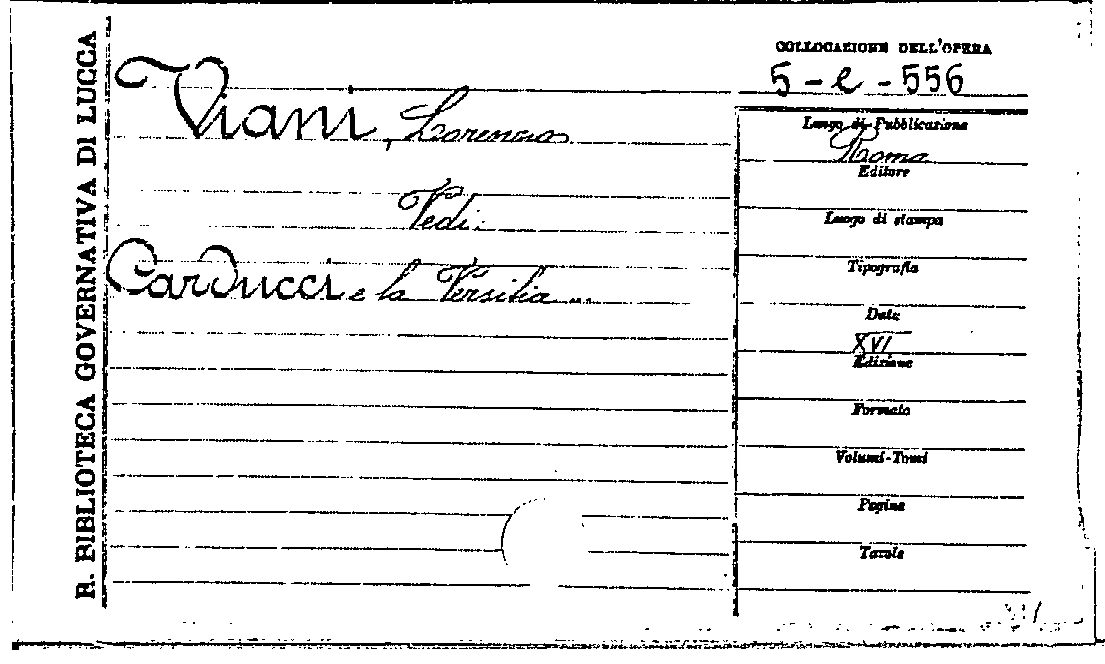 R. BIBLIOTECA GOVERNATIVA DI LUCCA
Viani, Lorenzo
Vedi:
Carducci e la Versilia ...
COLLOCAZIONE DELL'OPERA
5-e-556
Luogo di Pubblicazione
Roma
Editore
Luogo di stampa
Tipografia
Data
XVI
Edizione
Formato
Volumi-Tomi
Pagine
Tavole